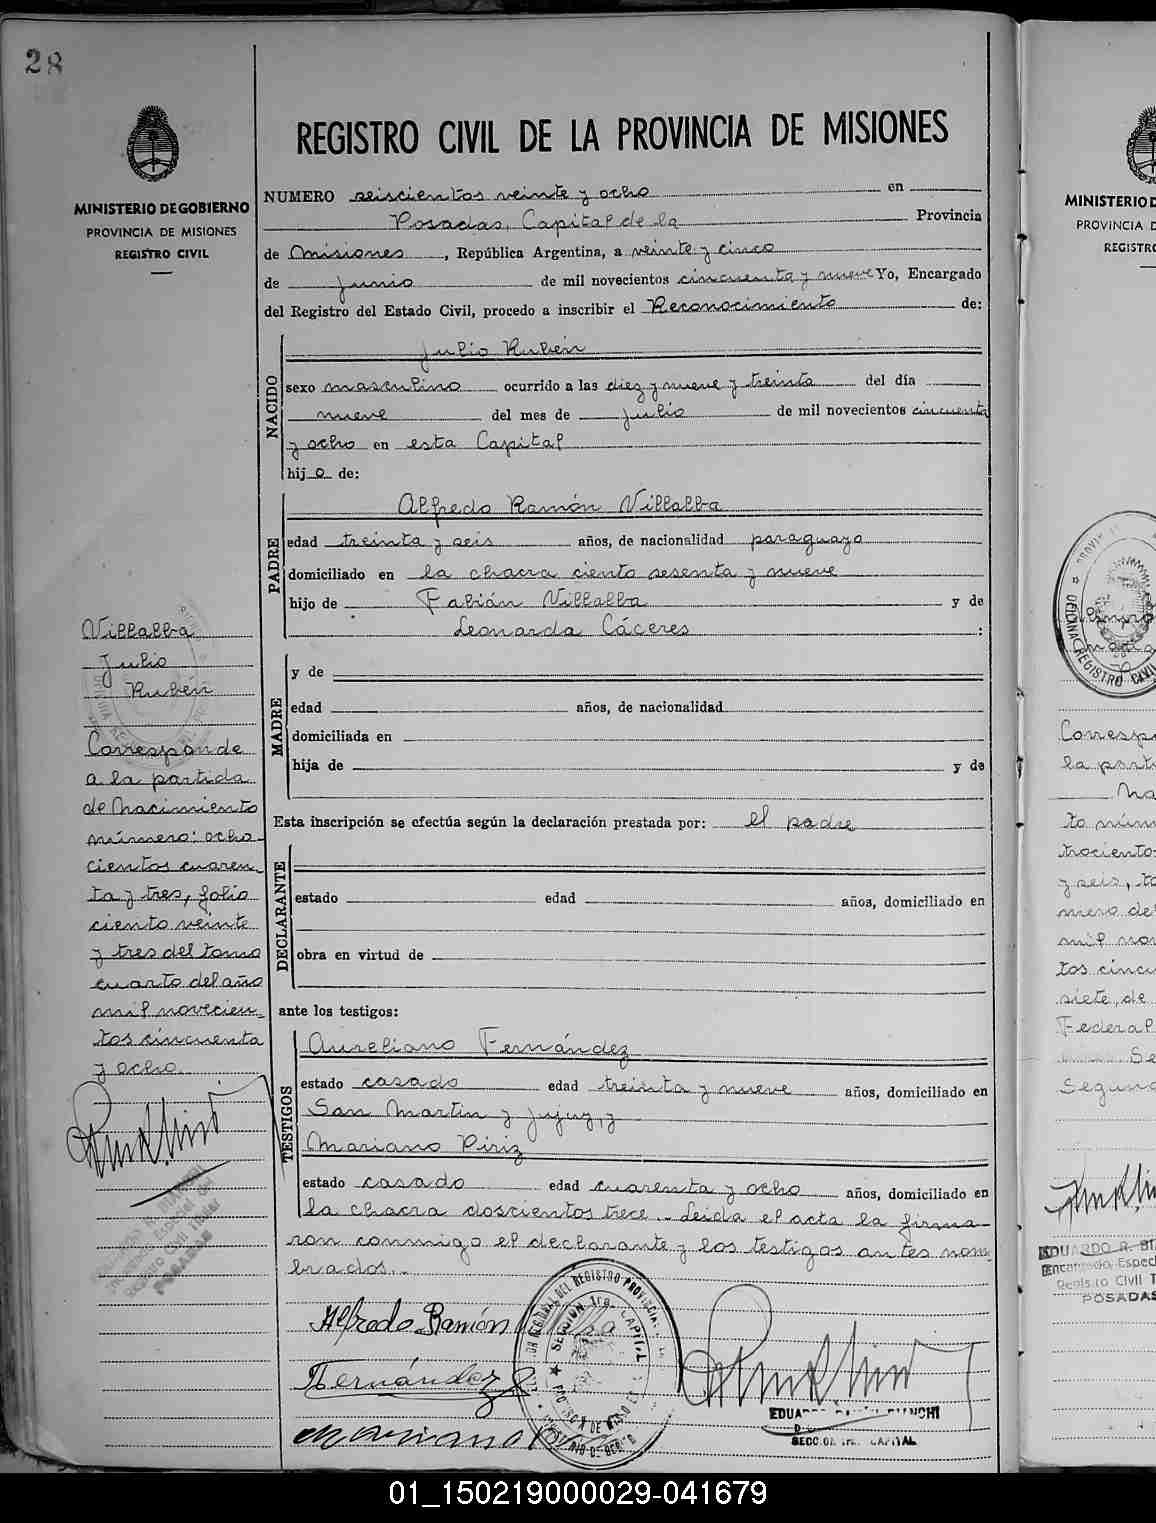 28
MINISTERIO DE GOBIERNO
PROVINCIA DE MISIONES
REGISTRO CIVIL
REGISTRO CIVIL DE LA PROVINCIA DE MISIONES
NUMERO seiscientos veinte y ocho en
Posadas, Capital de la Provincia
de Misiones, República Argentina, a veinte y cinco
de Junio de mil novecientos cincuenta y nueve Yo, Encargado
del Registro del Estado Civil, procedo a inscribir el Reconocimiento de:
NACIDO
Julio Rubén
sexo masculino ocurrido a las diez y nueve y treinta del día
nueve del mes de Julio de mil novecientos cincuenta
y ocho en esta Capital
hijo de:
PADRE
Alfredo Ramón Villalba
edad treinta y seis años, de nacionalidad paraguayo
domiciliado en la chacra ciento sesenta y nueve
hijo de Fabián Villalba y de
Leonarda Cáceres :
MADRE
y de
edad años, de nacionalidad
domiciliada en
hija de y de
Esta inscripción se efectúa según la declaración prestada por: el padre
DECLARANTE
estado edad años, domiciliado en
obra en virtud de
ante los testigos:
TESTIGOS
Aureliano Fernández
estado casado edad treinta y nueve años, domiciliado en
San Martín y Jujuy, y
Mariano Piriz
estado casado edad cuarenta y ocho años, domiciliado en
la chacra doscientos trece.. Leida el acta la firma-
ron conmigo el declarante y los testigos antes nom
brados..
Alfredo Ramón
Fernández
Mariano
SECCION 1ra. CAPITAL
SECCION 1ra. CAPITAL
Villalba
Julio
Rubén
Corresponde
a la partida
de Nacimiento
número: ocho-
cientos cuaren-
ta y tres, folio
ciento veinte
y tres del tomo
cuarto del año
mil novecien-
tos cincuenta
y ocho.
POSADAS
MINISTERIO D
PROVINCIA D
REGISTRO
OFICINA REGISTRO CIVIL
Corresp
la part
Na
to núm
trociento
y seis, to
mero del
mil nov
tos cincu
siete, de
Federal
Se
Segund
EDUARDO R. BI
Encargado Espec
Registro Civil T
POSADAS
01_150219000029-041679